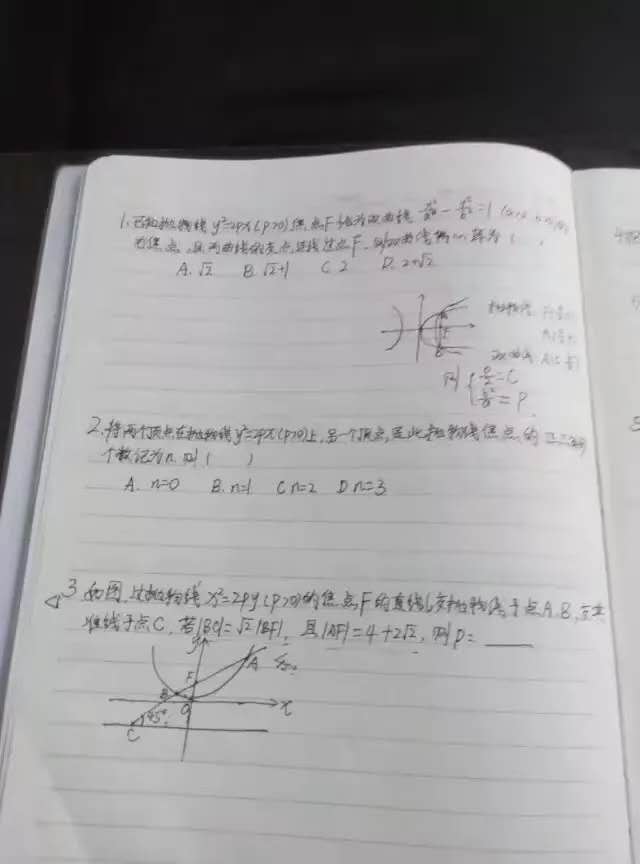 1.已知抛物线 y²=2px(p>0)焦点F恰为双曲线 x²/a² - y²/b² =1
的焦点,且两曲线的交点连线过点F,则双曲线离心率为(
A.√2 B.√2+1 C.2 D.2+√2
抛物线:
双曲线:
则 { p/2 = C
b²/a = P.
2.将两个顶点在抛物线y²=2px(p>0)上,另一个顶点是此抛物线焦点的正三角形
个数记为n,则( )
A. n=0 B. n=1 C n=2 D n=3
3 如图,过抛物线x²=2py(p>0)的焦点F的直线l交抛物线于点A.B,交其
准线于点C,若|BC|=√2|BF|,且|AF|=4+2√2,则p=____
y
A
F
B
O
x
45°
C